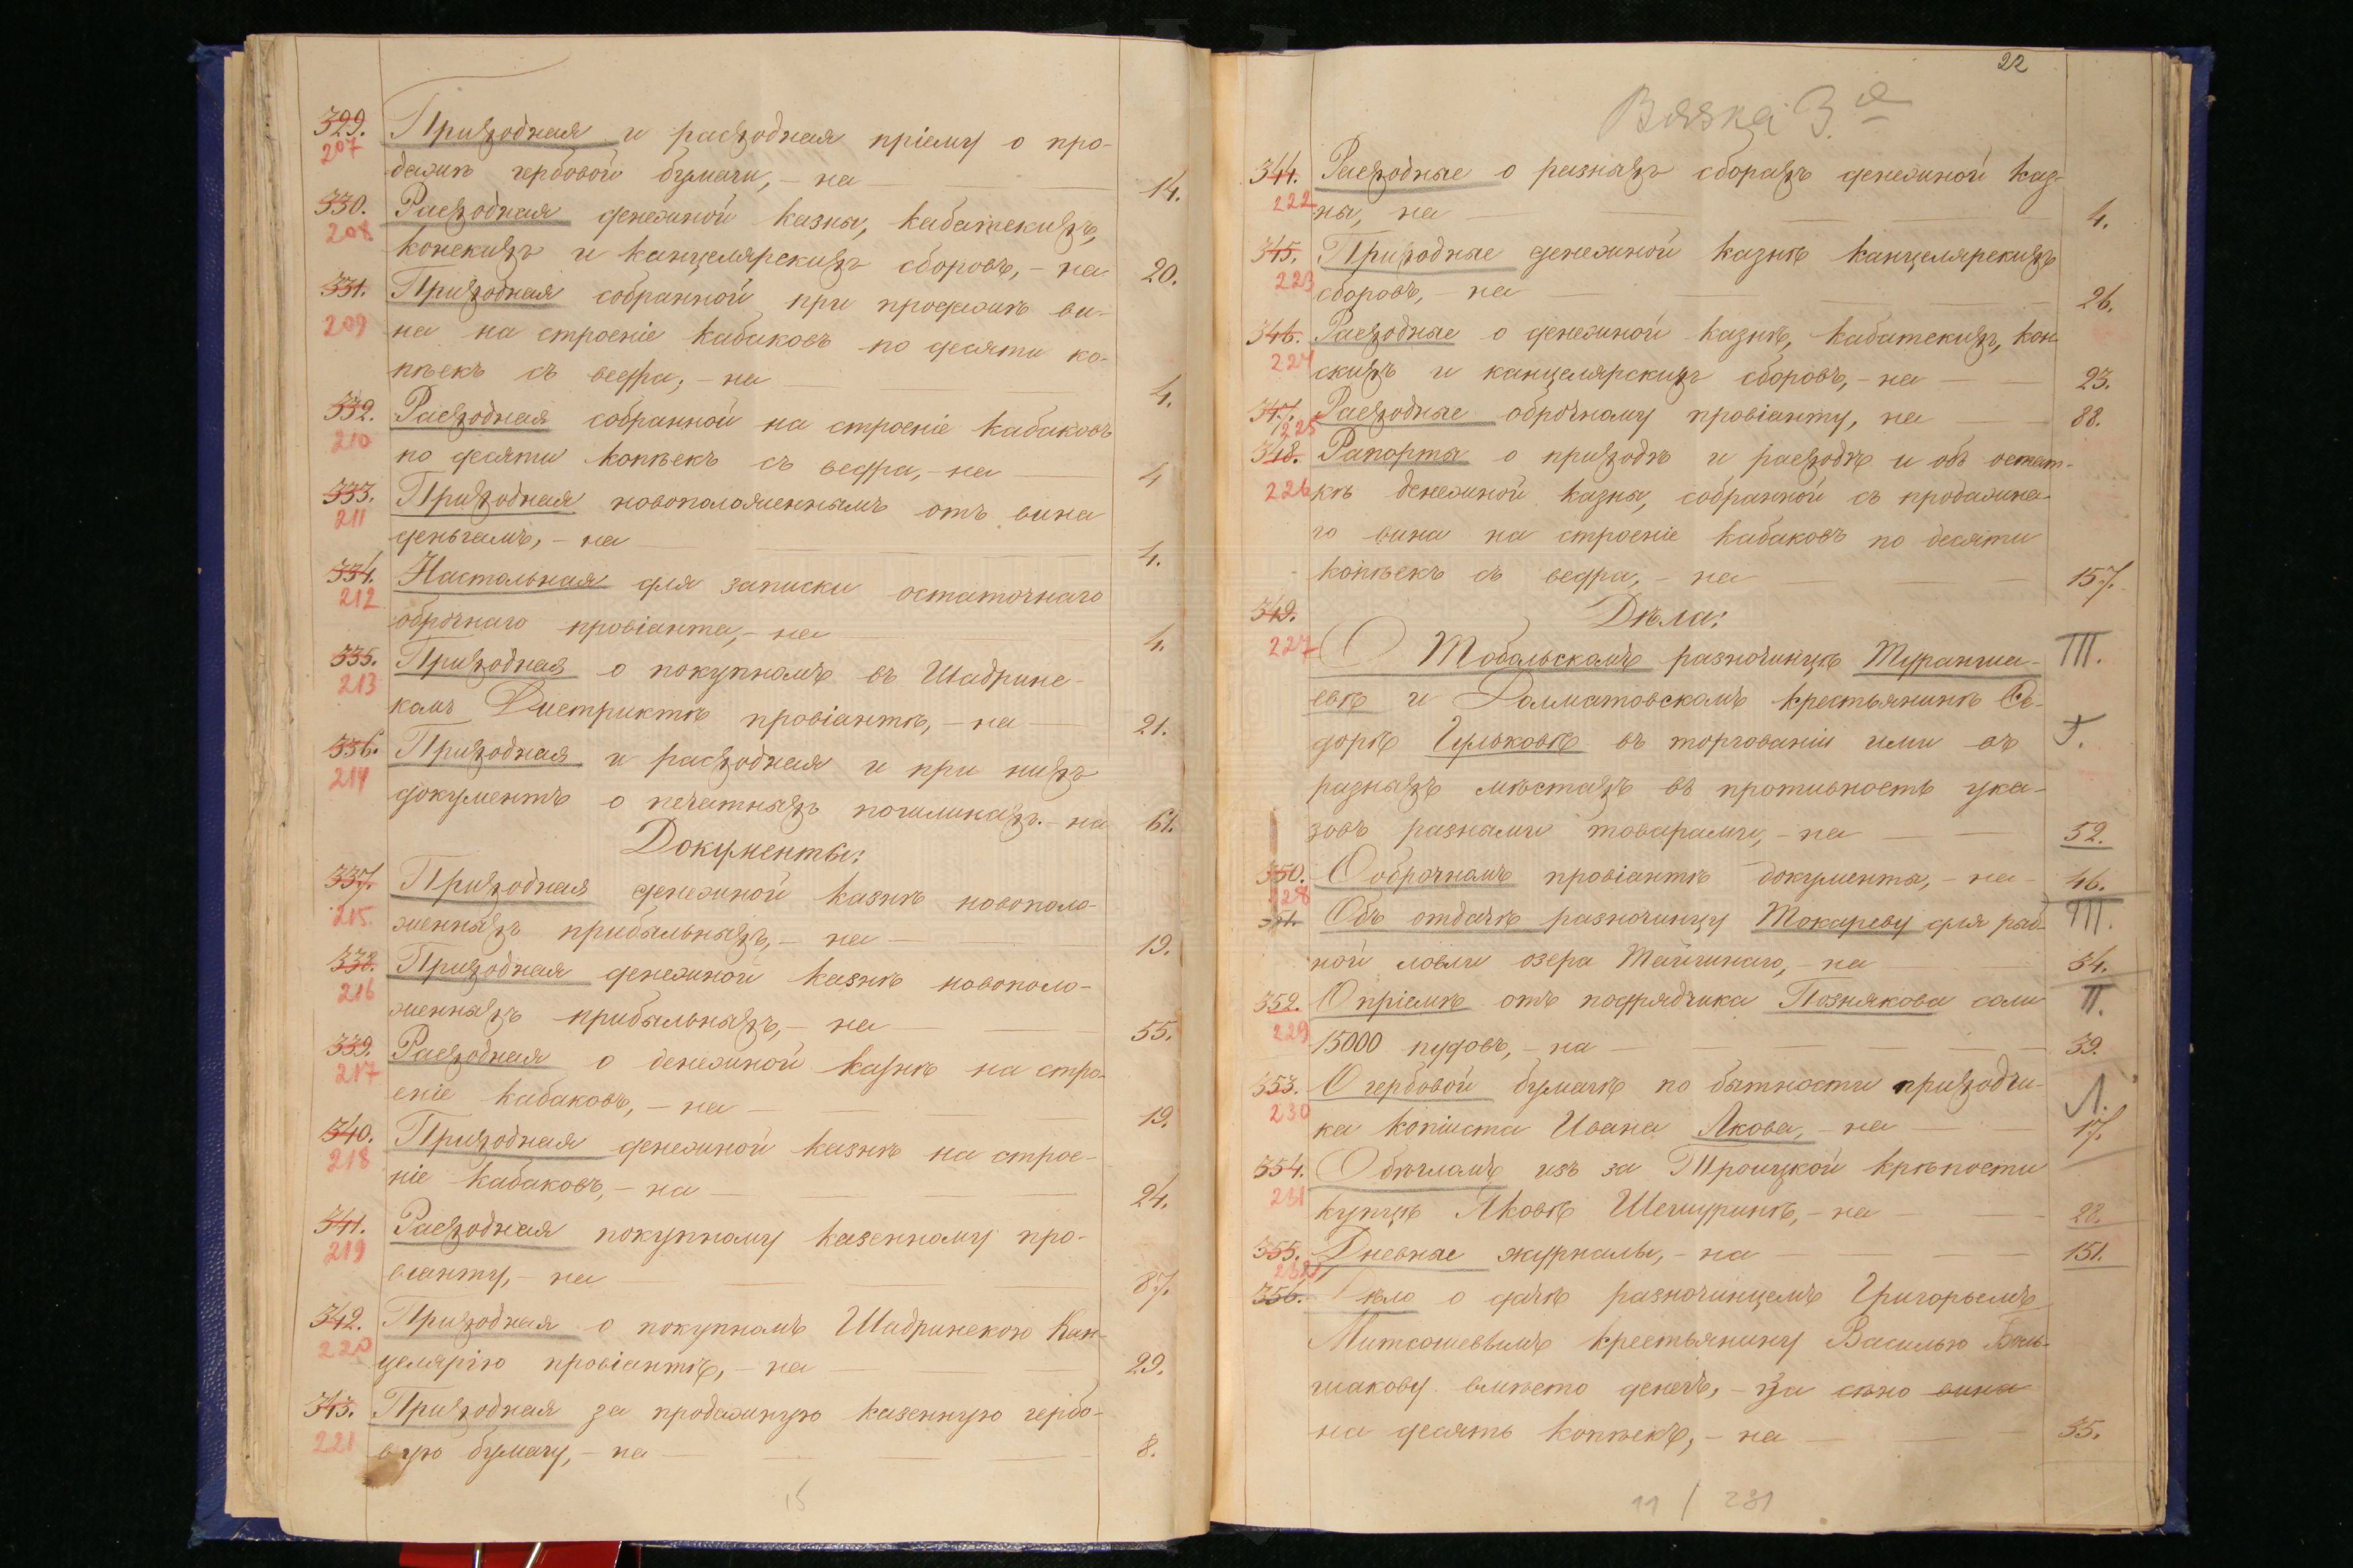 329. Приходная и расходная пріему о про-
207
дажѣ гербовой бумаги, - на 14.
330. Расходная денежной казны, кабатскихъ,
208
конскихъ и канцелярскихъ сборовъ, - на 20.
331. Приходная собранной при продажѣ ви-
209
на на строеніе кабаковъ по десяти ко-
пѣекъ съ ведра, - на 4.
332. Расходная собранной на строеніе кабаковъ
210
по десяти копѣекъ съ ведра, - на 4
333. Приходная новоположеннымъ отъ вина
211
деньгамъ, - на 4.
334. Настольная для записки остаточнаго
212
оброчнаго провіанта, - на 4.
335. Приходная о покупномъ въ Шадринс-
213
комъ Дистриктѣ провіантѣ, - на 21.
336. Приходная и расходная и при нихъ
214
документъ о печатныхъ пошлинахъ. - на 61.
Документы:
337. Приходная денежной казнѣ новополо-
215.
женныхъ прибыльныхъ, - на 19.
338. Приходная денежной казнѣ новополо-
216
женныхъ прибыльныхъ, - на 55.
339. Расходная о денежной казнѣ на стро-
217
еніе кабаковъ, - на 19.
340. Приходная денежной казнѣ на строе-
218
ніе кабаковъ, - на 24.
341. Расходная покупному казенному про-
219
віанту, - на 87.
342. Приходная о покупномъ Шадринскою Кан-
220
целяріею провіантѣ, - на 29.
343. Приходная за продажную казенную гербо-
221
вую бумагу, - на 8.
15
22
Вязка 3я
344. Расходные о разныхъ сборахъ денежной каз-
222
ны, на 4.
345. Приходные денежной казнѣ канцелярскихъ
223
сборовъ, - на 26.
346. Расходные о денежной казнѣ, кабатскихъ, кон-
224
скихъ и канцелярскихъ сборовъ, - на 23.
347. Расходные оброчному провіанту, на 88.
225
348. Рапорты о приходѣ и расходѣ и объ остат-
226 кѣ денежной казны, собранной съ продажна-
го вина на строеніе кабаковъ по десяти
копѣекъ съ ведра, - на 157.
349. Дѣла:
227 О Тобольскомъ разночинцѣ Турanша- Т.
евѣ и Долматовскомъ крестьянинѣ Ѳе-
дорѣ Гульковѣ въ торгованіи ими въ Г.
разныхъ мѣстахъ въ противность ука-
зовъ разными товарами, - на 52.
350. О оброчномъ провіантѣ документа, - на 46.
228
351. Объ отдачѣ разночинцу Токареву для рыб- Т.
ной ловли озера Тайчинаго, - на 54.
352. О пріемѣ отъ подрядчика Познякова соли П.
229
15000 пудовъ, - на 39.
353. О гербовой бумагѣ по бытности приходчи-
230
ка копіиста Ивана Лкова, - на Л. 17.
354. О бѣгломъ изъ за Троицкой крѣпости
231
купцѣ Яковѣ Шешуринѣ, - на 22.
355. Дневные журналы, - на 151.
232
356. Дѣло о дачѣ разночинцемъ Григорьемъ
Митсошевымъ крестьянину Василью Боль-
шакову вмѣсто денегъ, - за сѣно вина
на десять копѣекъ, - на 35.
11 / 231